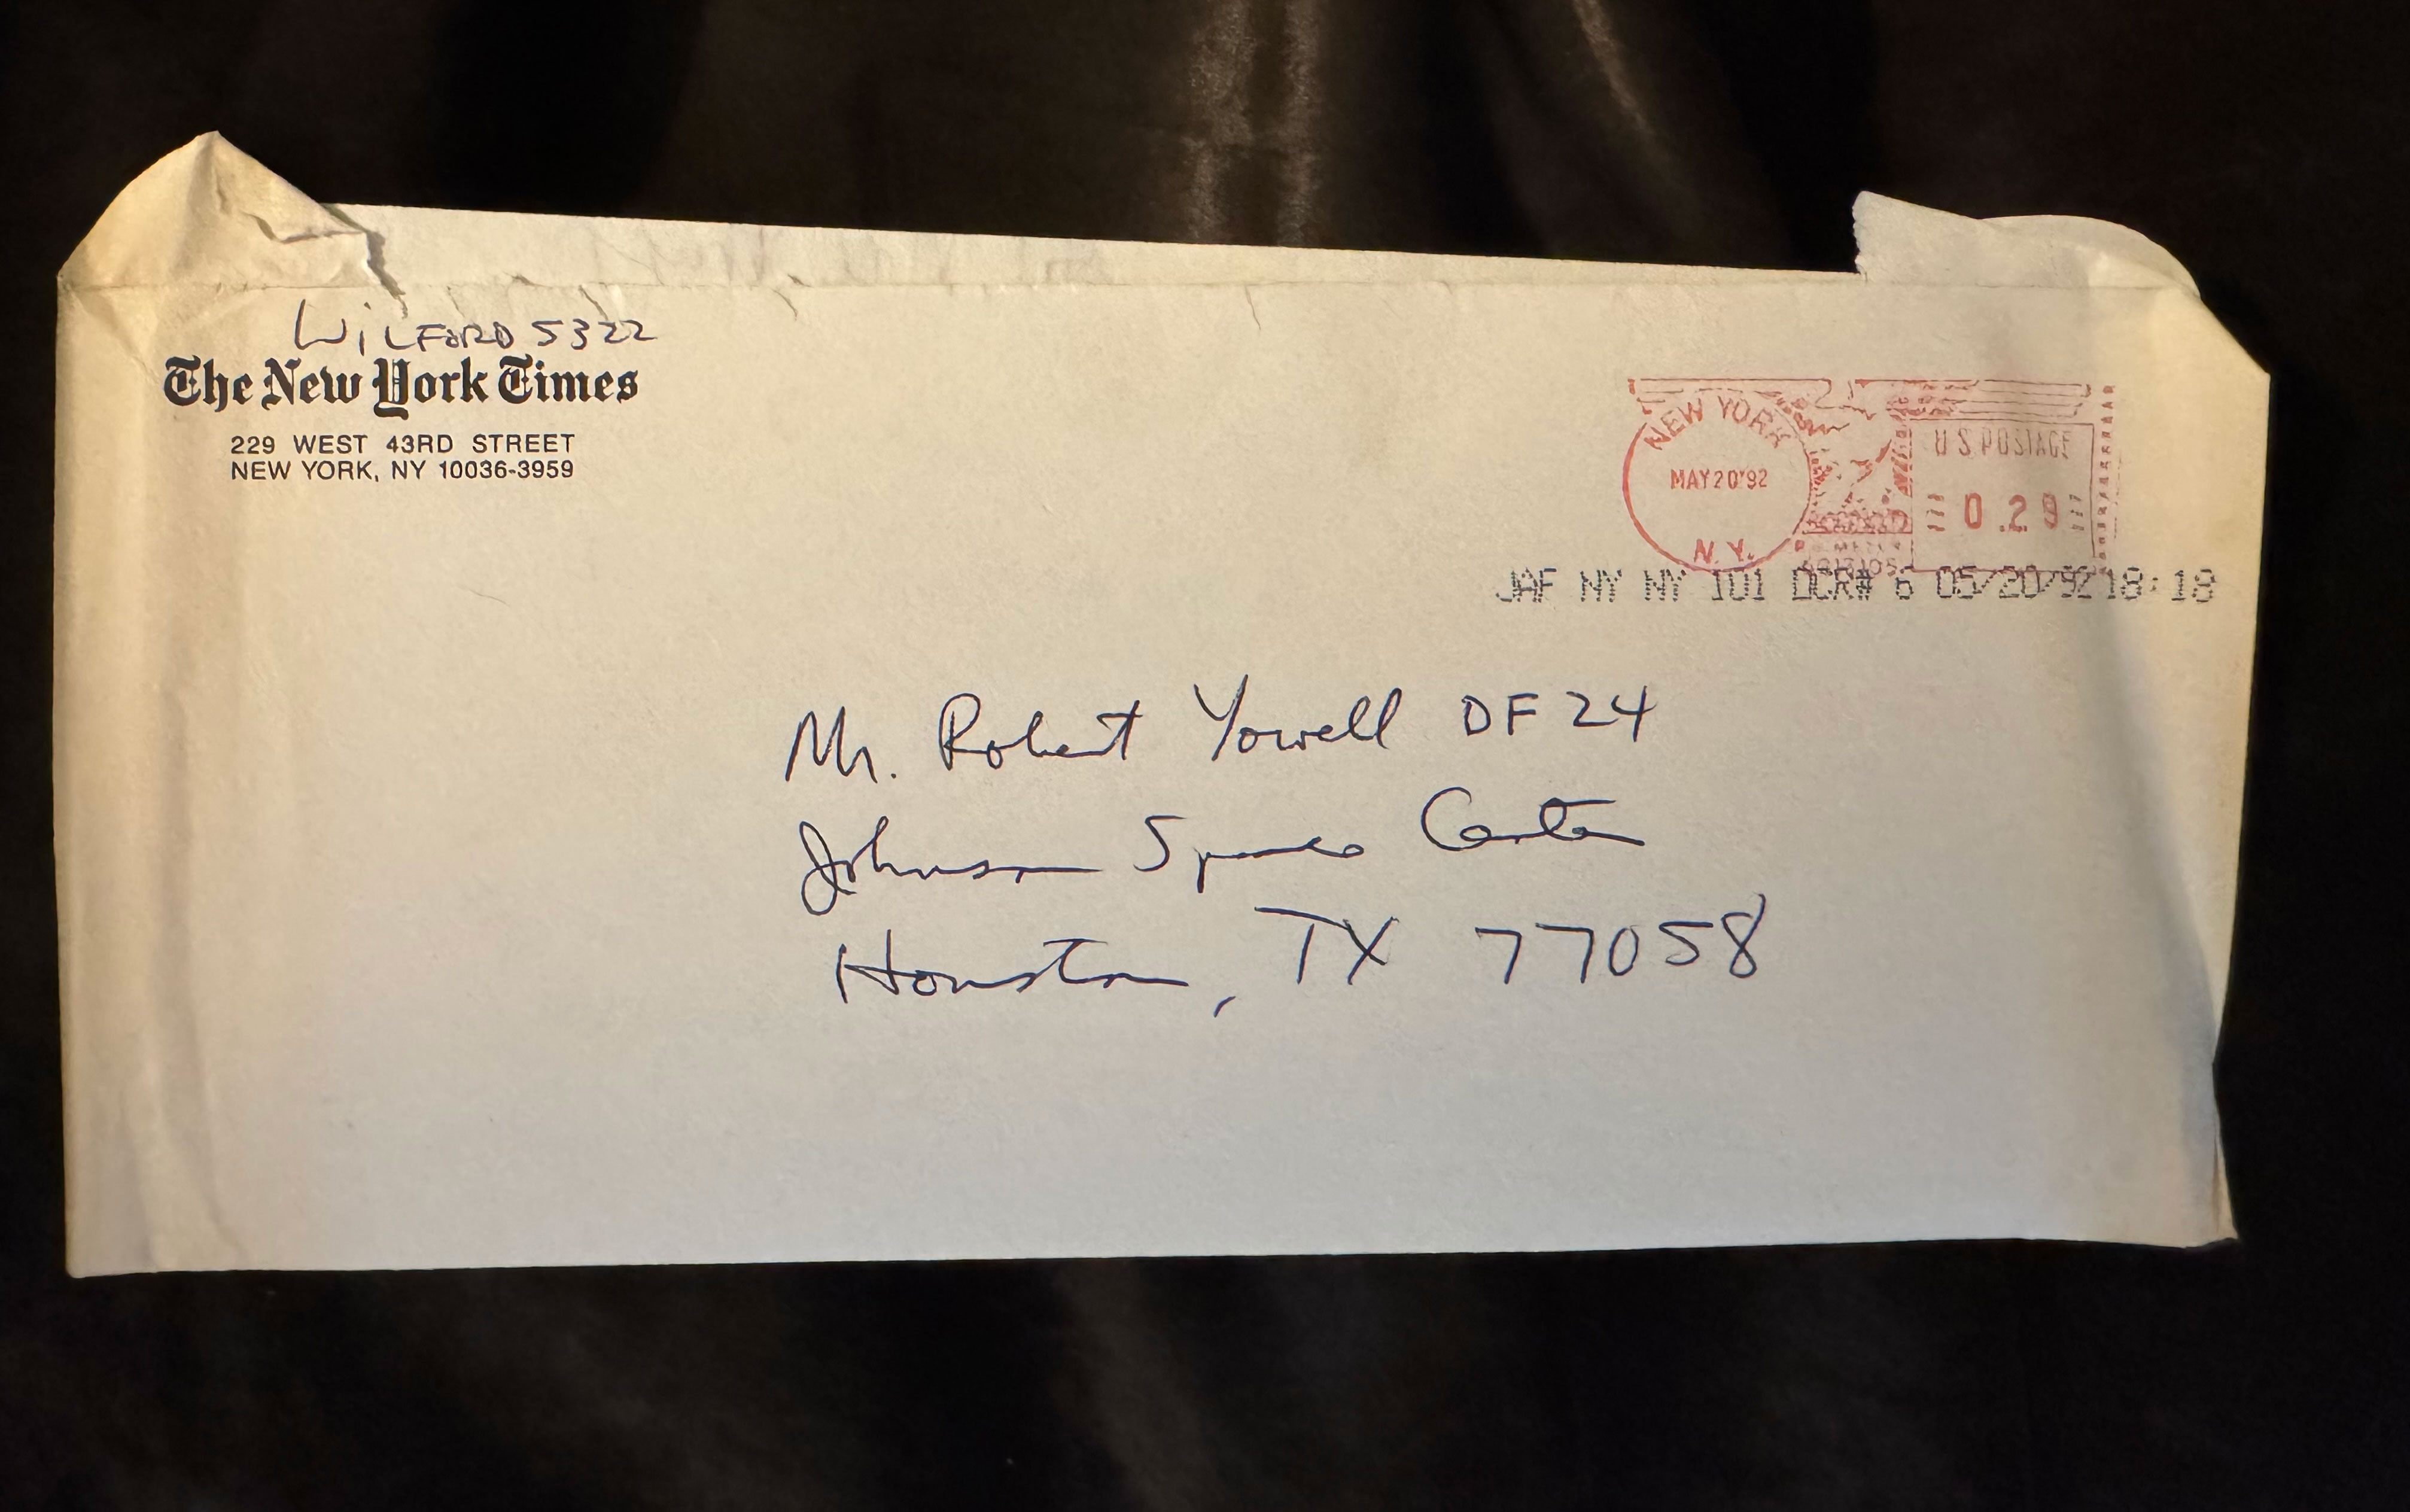 WILFORD 5322
The New York Times
229 WEST 43RD STREET
NEW YORK, NY 10036-3959
NEW YORK
MAY20'92
N.Y.
U.S. POSTAGE
0.29
JAF NY NY 101 OCR# 6 05/20/92 18:18
Mr. Robert Yowell DF24
Johnson Space Center
Houston, TX 77058